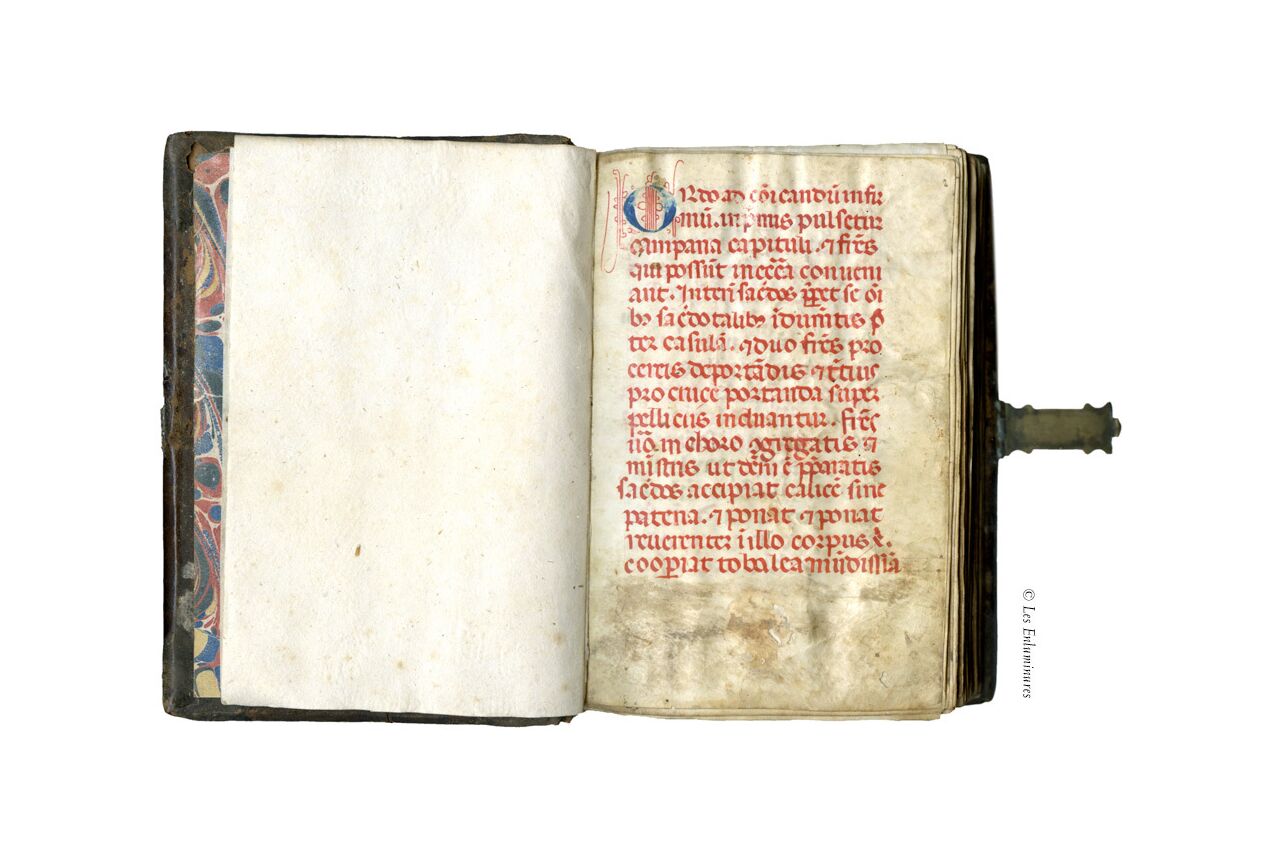 Ordo ad cōicandū infir
mū. in pͥmis pulsetur
campana capituli. ⁊ fr̄es
qui possūt in ecc̄a conueni
ant. Interī sac̄dos p̄p̄et se oī
bꝫ sac̄dotalibꝫ īdum̄tis p̄
ter casulā. ⁊ duo fr̄es pro
cereis deportādis ⁊ t̄tius
pro cruce portanda super
pelliceis induantur. fr̄es
ū̊ in choro ꝯgregatis ⁊
mīstris ut dc̄m ē p̄paratis
sac̄dos accipiat calicē sine
patena. ⁊ ponat ⁊ ponat
reuerenter ī illo corpus
cooꝑiat tobalea mūdissīa
© Les Enluminures